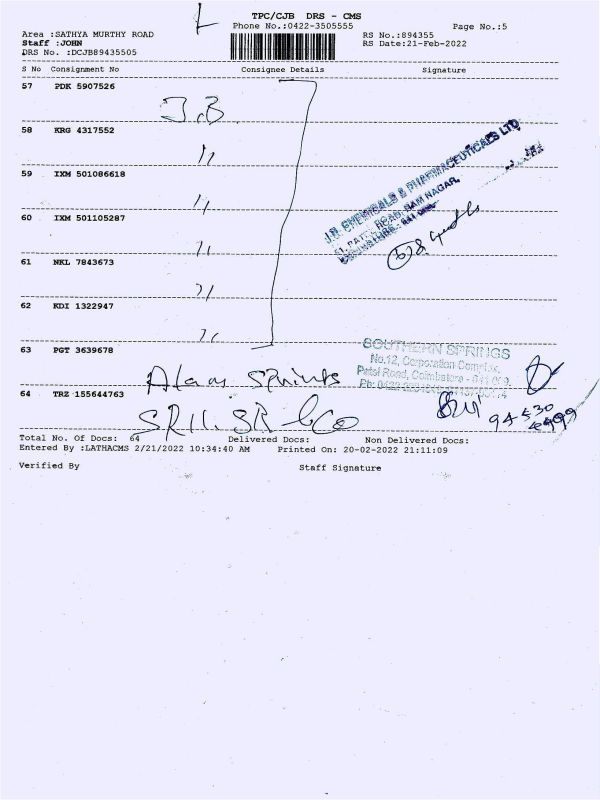 TPC/CJB DRS - CMS
Phone No.:0422-3505555
Page No.:5
Area :SATHYA MURTHY ROAD
Staff :JOHN
DRS No. :DCJB89435505
RS No.:894355
RS Date:21-Feb-2022
S No Consignment No Consignee Details Signature
57 PDK 5907526
J.B
58 KRG 4317552
59 IXM 501086618
60 IXM 501105287
61 NKL 7843673
62 KDI 1322947
J.B. CHEMICALS & PHARMACEUTICALS LTD
RAM NAGAR,
63 PGT 3639678
SOUTHERN SPRINGS
No.12, Corporation Complex,
Patel Road, Coimbatore - 641 009.
64 TRZ 155644763
Total No. Of Docs: 64 Delivered Docs: Non Delivered Docs:
Entered By :LATHACMS 2/21/2022 10:34:40 AM Printed On: 20-02-2022 21:11:09
Verified By Staff Signature